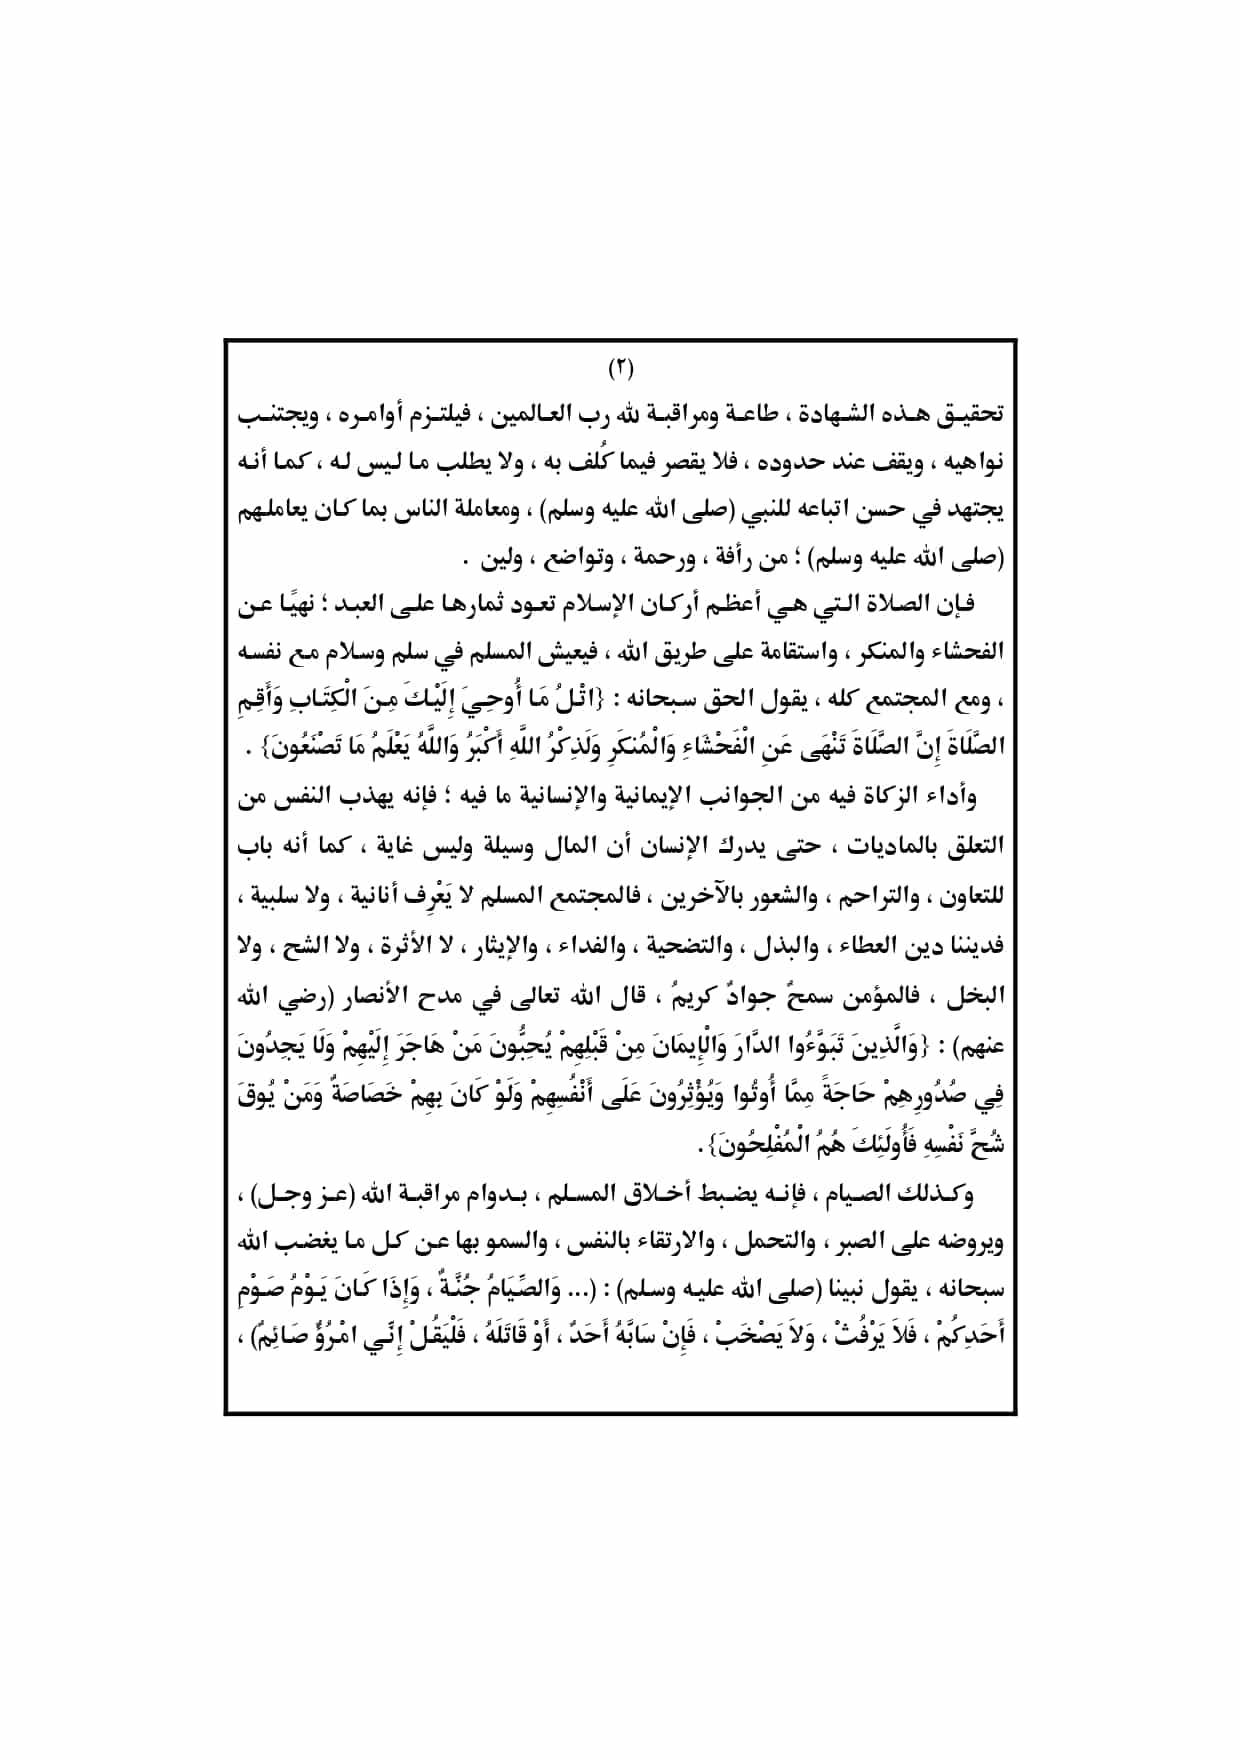 (٢)
تحقيق هذه الشهادة ، طاعة ومراقبة لله رب العالمين ، فيلتزم أوامره ، ويجتنب
نواهيه ، ويقف عند حدوده ، فلا يقصر فيما كُلف به ، ولا يطلب ما ليس له ، كما أنه
يجتهد في حسن اتباعه للنبي (صلى الله عليه وسلم) ، ومعاملة الناس بما كان يعاملهم
(صلى الله عليه وسلم) ؛ من رأفة ، ورحمة ، وتواضع ، ولين .
فإن الصلاة التي هي أعظم أركان الإسلام تعود ثمارها على العبد ؛ نهيًا عن
الفحشاء والمنكر ، واستقامة على طريق الله ، فيعيش المسلم في سلم وسلام مع نفسه
، ومع المجتمع كله ، يقول الحق سبحانه : {اتْلُ مَا أُوحِيَ إِلَيْكَ مِنَ الْكِتَابِ وَأَقِمِ
الصَّلَاةَ إِنَّ الصَّلَاةَ تَنْهَى عَنِ الْفَحْشَاءِ وَالْمُنكَرِ وَلَذِكْرُ اللَّهِ أَكْبَرُ وَاللَّهُ يَعْلَمُ مَا تَصْنَعُونَ} .
وأداء الزكاة فيه من الجوانب الإيمانية والإنسانية ما فيه ؛ فإنه يهذب النفس من
التعلق بالماديات ، حتى يدرك الإنسان أن المال وسيلة وليس غاية ، كما أنه باب
للتعاون ، والتراحم ، والشعور بالآخرين ، فالمجتمع المسلم لا يَعْرِف أنانية ، ولا سلبية ،
فديننا دين العطاء ، والبذل ، والتضحية ، والفداء ، والإيثار ، لا الأثرة ، ولا الشح ، ولا
البخل ، فالمؤمن سمحٌ جوادٌ كريمُ ، قال الله تعالى في مدح الأنصار (رضي الله
عنهم) : {وَالَّذِينَ تَبَوَّءُوا الدَّارَ وَالْإِيمَانَ مِنْ قَبْلِهِمْ يُحِبُّونَ مَنْ هَاجَرَ إِلَيْهِمْ وَلَا يَجِدُونَ
فِي صُدُورِهِمْ حَاجَةً مِمَّا أُوتُوا وَيُؤْثِرُونَ عَلَى أَنْفُسِهِمْ وَلَوْ كَانَ بِهِمْ خَصَاصَةٌ وَمَنْ يُوقَ
شُحَّ نَفْسِهِ فَأُولَئِكَ هُمُ الْمُفْلِحُونَ}.
وكذلك الصيام ، فإنه يضبط أخلاق المسلم ، بدوام مراقبة الله (عز وجل) ،
ويروضه على الصبر ، والتحمل ، والارتقاء بالنفس ، والسمو بها عن كل ما يغضب الله
سبحانه ، يقول نبينا (صلى الله عليه وسلم) : (... وَالصِّيَامُ جُنَّةٌ ، وَإِذَا كَانَ يَوْمُ صَوْمِ
أَحَدِكُمْ ، فَلاَ يَرْفُثْ ، وَلاَ يَصْخَبْ ، فَإِنْ سَابَّهُ أَحَدٌ ، أَوْ قَاتَلَهُ ، فَلْيَقُلْ إِنِّي امْرُؤٌ صَائِمٌ) ،